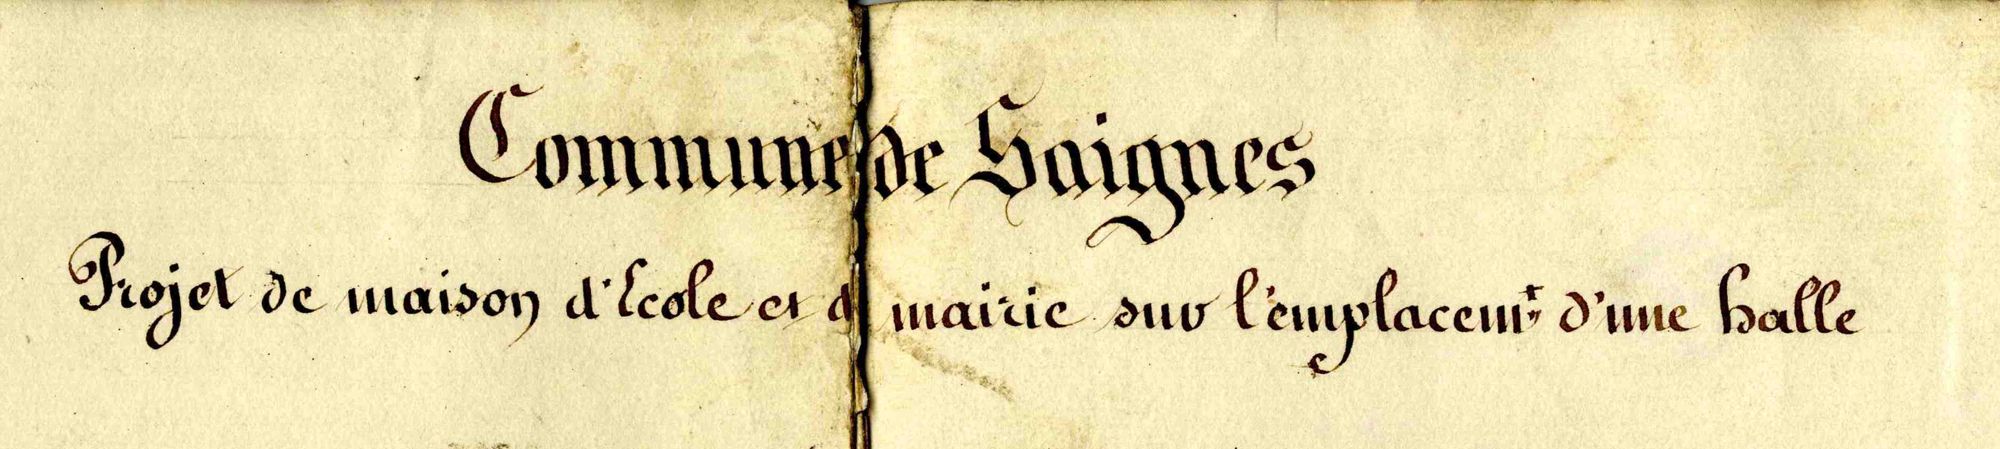 Commune de Saignes
Projet de maison d'Ecole et d mairie sur l'emplacemt d'une halle